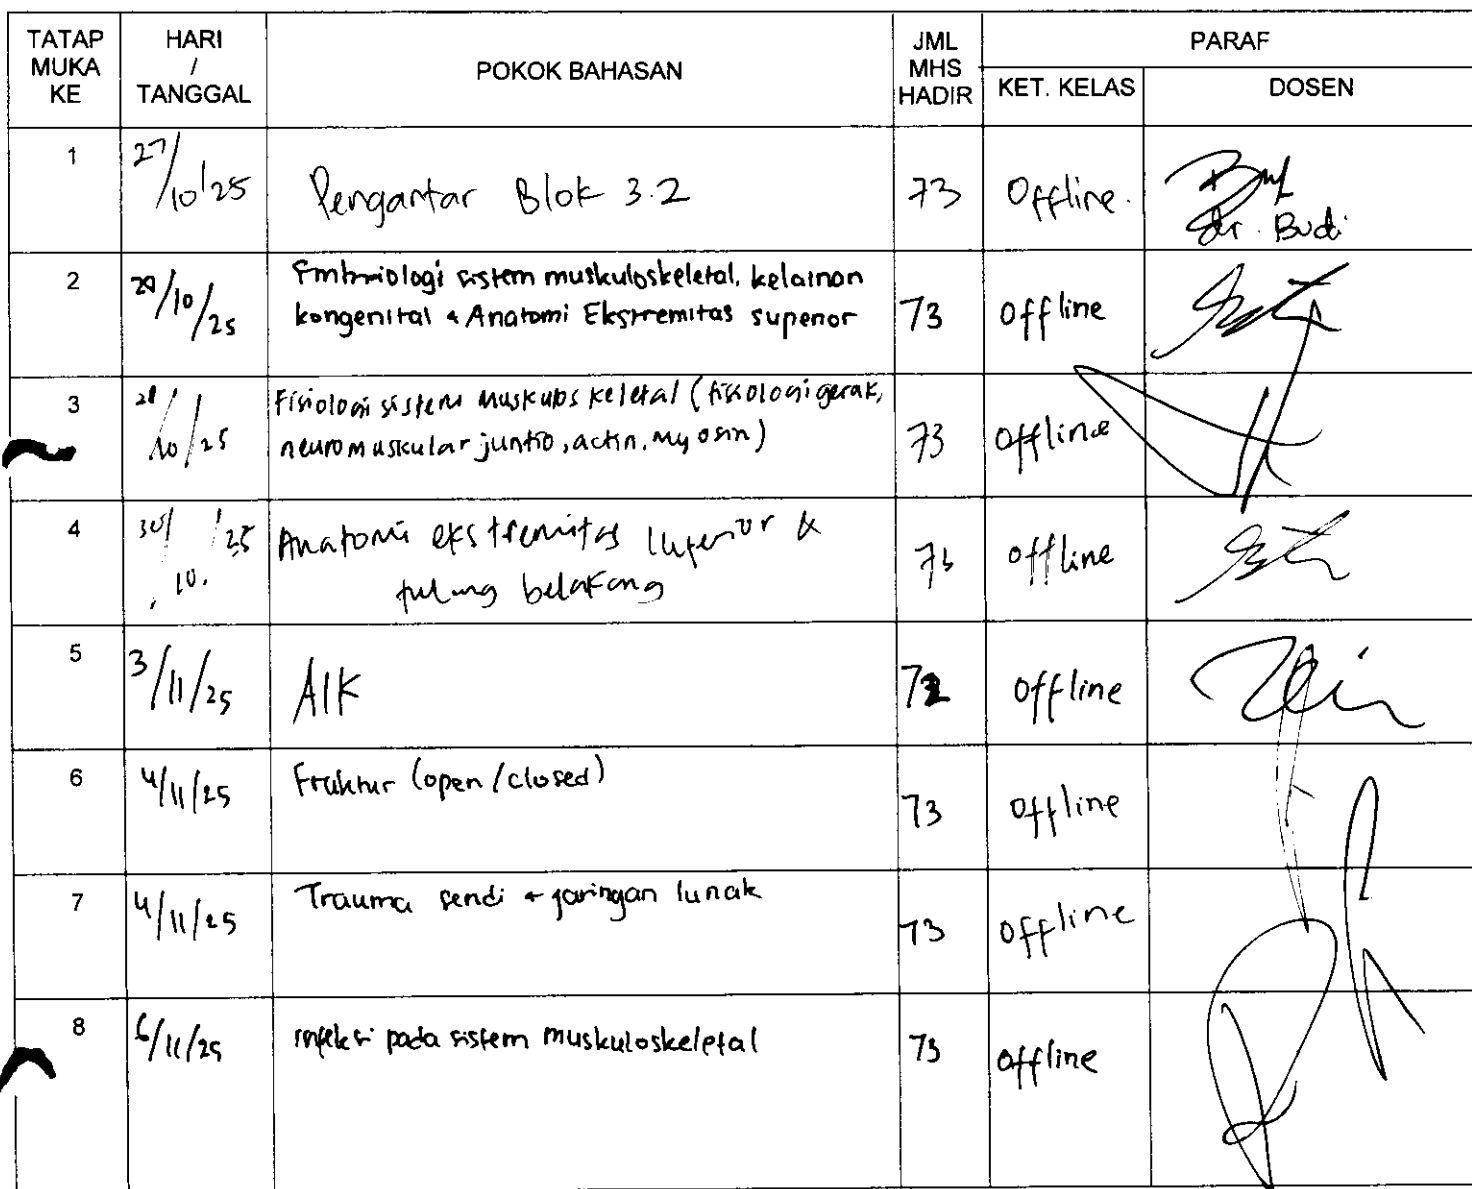 TATAP MUKA KE
HARI / TANGGAL
POKOK BAHASAN
JML MHS HADIR
PARAF
KET. KELAS
DOSEN
1 27/10/25 Pengantar Blok 3.2 73 Offline. dr. Budi
2 /10/25 Embriologi sistem muskuloskeletal, kelainan
kongenital & Anatomi Ekstremitas superior 73 Offline
3 /10/25 Fisiologi sistem muskuloskeletal (fisiologi gerak,
neuromuskular juntio, actin, myosin) 73 Offline
4 30/10/25 Anatomi ekstremitas inferior &
tulang belakang 73 Offline
5 3/11/25 AIK Offline
6 4/11/25 Fraktur (open/closed) 73 Offline
7 4/11/25 Trauma sendi & jaringan lunak 73 Offline
8 6/11/25 infeksi pada sistem muskuloskeletal 73 Offline